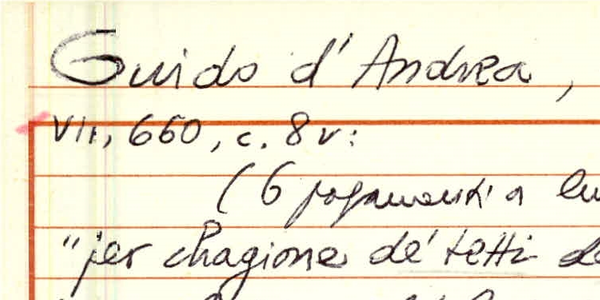 Guido d'Andrea,
VII, 660, c. 8v:
(6 pagamenti a
"per chagione de' tetti